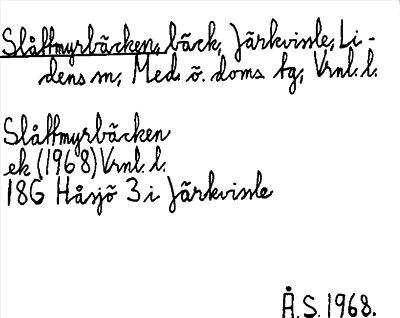 Slåttmyrbäcken, bäck, Järkvissle, Li-
dens sn, Med. ö. doms tg, Vrnl. l.
Slåttmyrbäcken
ek (1968) Vrnl. l.
18G Håsjö 3 i Järkvissle
Å.S. 1968.